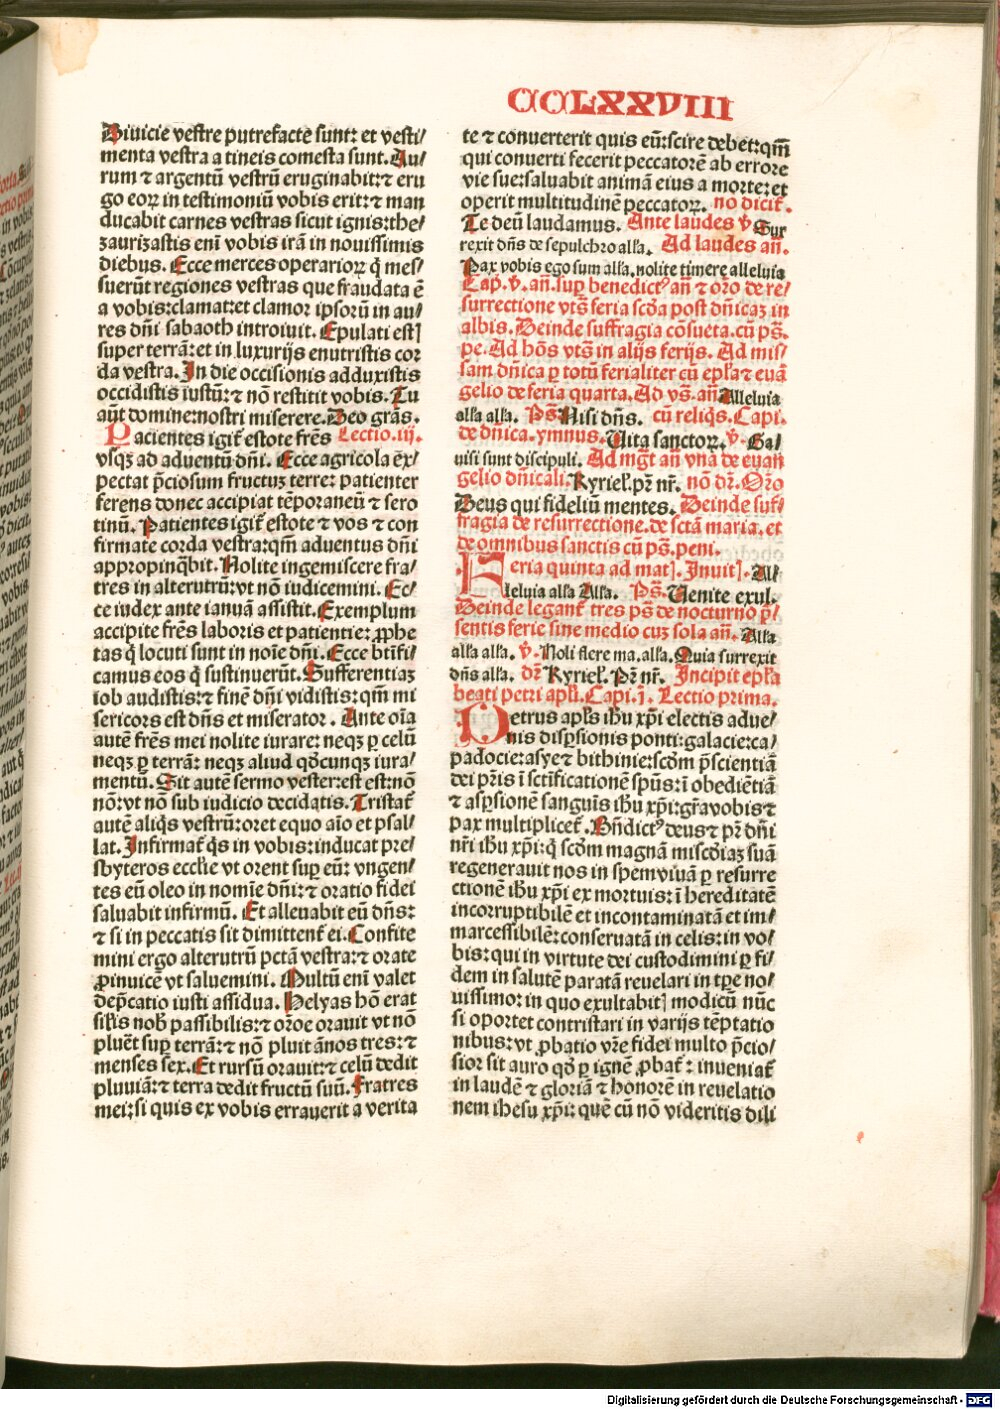 CCLXXVIII
Diuicie vestre putrefacte sunt: et vesti/
menta vestra a tineis comesta sunt. Au/
rum ⁊ argentū vestrū eruginabit: ⁊ eru
go eoꝝ in testimoniū vobis erit: ⁊ man
ducabit carnes vestras sicut ignis: the/
zaurizastis eni vobis irā in nouissimis
diebus. Ecce merces operarioꝝ q̄ mes/
suerūt regiones vestras que fraudata ē
a vobis: clamat: et clamor ipsorū in au/
res dn̄i sabaoth introiuit. Epulati est]
super terrā: et in luxurijs enutristis cor
da vestra. In die occisionis adduxistis
occidistis iustū: ⁊ nō restitit vobis. Tu
aūt domine: nostri miserere. Deo gr̄as.
Pacientes igit̄ estote fr̄es Lectio .iij.
vsqꝫ ad aduentū dn̄i. Ecce agricola ex̄/
pectat p̄ciosum fructuꝫ terre: patienter
ferens donec accipiat tēporaneū ⁊ sero
tinū. Patientes igit̄ estote ⁊ vos ⁊ con
firmate corda vestra: qm̄ aduentus dn̄i
appropinq̄bit. Nolite ingemiscere fra/
tres in alterutrū: vt nō iudicemini. Ec/
ce iudex ante ianuā assistit. Exemplum
accipite fr̄es laboris et patientie: ꝓphe
tas q̄ locuti sunt in noīe dn̄i. Ecce btīfi/
camus eos q̄ sustinuerūt. Sufferentiaꝫ
iob audistis: ⁊ finē dn̄i vidistis: qm̄ mi
sericors est dn̄s et miserator. Ante oīa
autē fr̄es mei nolite iurare: neqꝫ ꝑ celū
neqꝫ ꝑ terrā: neqꝫ aliud qd̄cunqꝫ iura/
mentū. Sit autē sermo vester: est est: nō
nō: vt nō sub iudicio decidatis. Tristat̄
autē aliq̄s vestrū: oret equo aīo et psal/
lat. Infirmat̄ q̄s in vobis: inducat pre/
sbyteros ecclīe vt orent suꝑ eū: vngen/
tes eū oleo in nomīe dn̄i: ⁊ oratio fidei
saluabit infirmū. Et alleuabit eū dn̄s:
⁊ si in peccatis sit dimittent̄ ei. Confite
mini ergo alterutrū pctā vestra: ⁊ orate
ꝓinuicē vt saluemini. Multū eni valet
dep̄catio iusti assidua. Helyas hō erat
sil̄is nob̄ passibilis: ⁊ or̄oe orauit vt nō
pluēt suꝑ terrā: ⁊ nō pluit ānos tres: ⁊
menses sex. Et rursū orauit: ⁊ celū dedit
pluuiā: ⁊ terra dedit fructū suū. Fratres
mei: si quis ex vobis errauerit a verita
te ⁊ conuerterit quis eū: scire debet: qm̄
qui conuerti fecerit peccatorē ab errore
vie sue: saluabit animā eius a morte: et
operit multitudinē peccatoꝝ. no dicit̄.
Te deū laudamus. Ante laudes v̄ Sur
rexit dn̄s de sepulchro alła. Ad laudes an̄.
Pax vobis ego sum alła. nolite timere alleluia
Cap̄. v̄. an̄. suꝑ benedictꝰ an̄ ⁊ or̄o de re/
surrectione vts̄ feria scd̄a post dn̄icaꝫ in
albis. Deinde suffragia cōsueta. cū ps̄.
pe. Ad hōs vts̄ in alijs ferijs. Ad mis/
sam dn̄ica ꝑ totū ferialiter cū epl̄a ⁊ euā
gelio de feria quarta. Ad vs̄. an̄ Alleluia
alła alła. Ps̄. Nisi dn̄s. cū reliq̄s. Capi.
de dn̄ica. ymnus. Vita sanctoꝝ. v̄. Ga/
uisi sunt discipuli. Ad mḡt an̄ vnā de euan
gelio dn̄icali. Kyriel. pr̄ nr̄. nō dr̄. Or̄o
Deus qui fideliū mentes. Deinde suf/
fragia de resurrectione. de sctā maria. et
de omnibus sanctis cū ps̄. peni.
Feria quinta ad mat]. Inuit]. Al/
leluia alła Alła. Ps̄. Uenite exul.
Deinde legant̄ tres ps̄ de nocturno p̄/
sentis ferie sine medio cuꝫ sola an̄. Alła
alła alła. v̄. Noli flere ma. alła. Quia surrexit
dn̄s alła. dr̄ Kyriel. Pr̄ nr̄. Incipit epl̄a
beati petri apl̄i. Capi. j. Lectio prima.
Petrus apl̄s ihū xp̄i electis adue/
nis disꝑsionis ponti: galacie: ca/
padocie: asye ⁊ bithinie: scd̄m p̄scientiā
dei pr̄is ī sctīficationē sp̄us: ī obediētiā
⁊ asꝑsionē sanguis ihū xp̄i: gr̄a vobis ⁊
pax multiplicet̄. Bn̄dictꝰ deus ⁊ pr̄ dn̄i
nr̄i ihū xp̄i: q̄ scd̄m magnā miscd̄iaꝫ suā
regenerauit nos in spem viuā ꝑ resurre
ctionē ihū xp̄i ex mortuis: ī hereditatē
incorruptibilē et incontaminatā et im/
marcessibilē: conseruatā in celis: in vo/
bis: qui in virtute dei custodimini ꝑ fi/
dem in salutē paratā reuelari in tp̄e no/
uissimo: in quo exultabit] modicū nūc
si oportet contristari in varijs tēptatio
nibus: vt ꝓbatio vr̄e fidei multo p̄cio/
sior sit auro qd̄ ꝑ ignē ꝓbat̄: inueniat̄
in laudē ⁊ gloriā ⁊ honorē in reuelatio
nem ihesu xp̄i: quē cū nō videritis dili
Digitalisierung gefördert durch die Deutsche Forschungsgemeinschaft - DFG